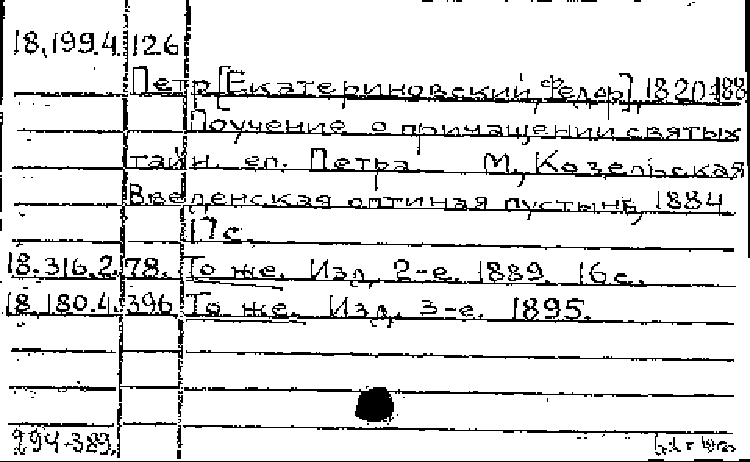 18.199.4.126
Петр [Екатериновский, Федор], 1820-188
Поучение о причащении святых
тайн. еп. Петра М., Козельская
Введенская оптиная пустынь, 1884
17 с.
18.316.2.78. То же. Изд. 2-е. 1889. 16 с.
18.180.4.396 То же. Изд. 3-е. 1895.
294-389.